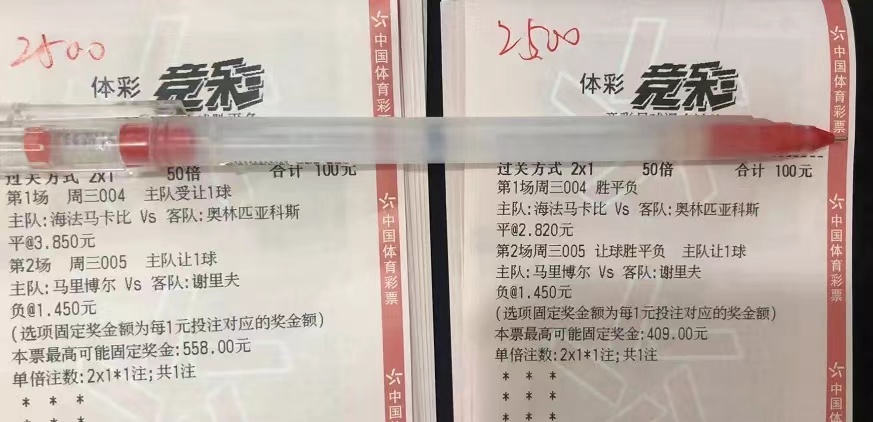 2500
体彩 竞彩
过关方式 2x1 50倍 合计 100元
第1场 周三004 主队受让1球
主队:海法马卡比 Vs 客队:奥林匹亚科斯
平@3.850元
第2场 周三005 主队让1球
主队:马里博尔 Vs 客队:谢里夫
负@1.450元
(选项固定奖金额为每1元投注对应的奖金额)
本票最高可能固定奖金:558.00元
单倍注数:2x1*1注;共1注
* * *
* * *
中国体育彩票
中国体育彩票
中国
2500
体彩 竞彩
过关方式 2x1 50倍 合计 100元
第1场周三004 胜平负
主队:海法马卡比 Vs 客队:奥林匹亚科斯
平@2.820元
第2场周三005 让球胜平负 主队让1球
主队:马里博尔 Vs 客队:谢里夫
负@1.450元
(选项固定奖金额为每1元投注对应的奖金额)
本票最高可能固定奖金:409.00元
单倍注数:2x1*1注;共1注
* * *
* * *
* * *
中国体育彩票
中国体育彩票
中国体